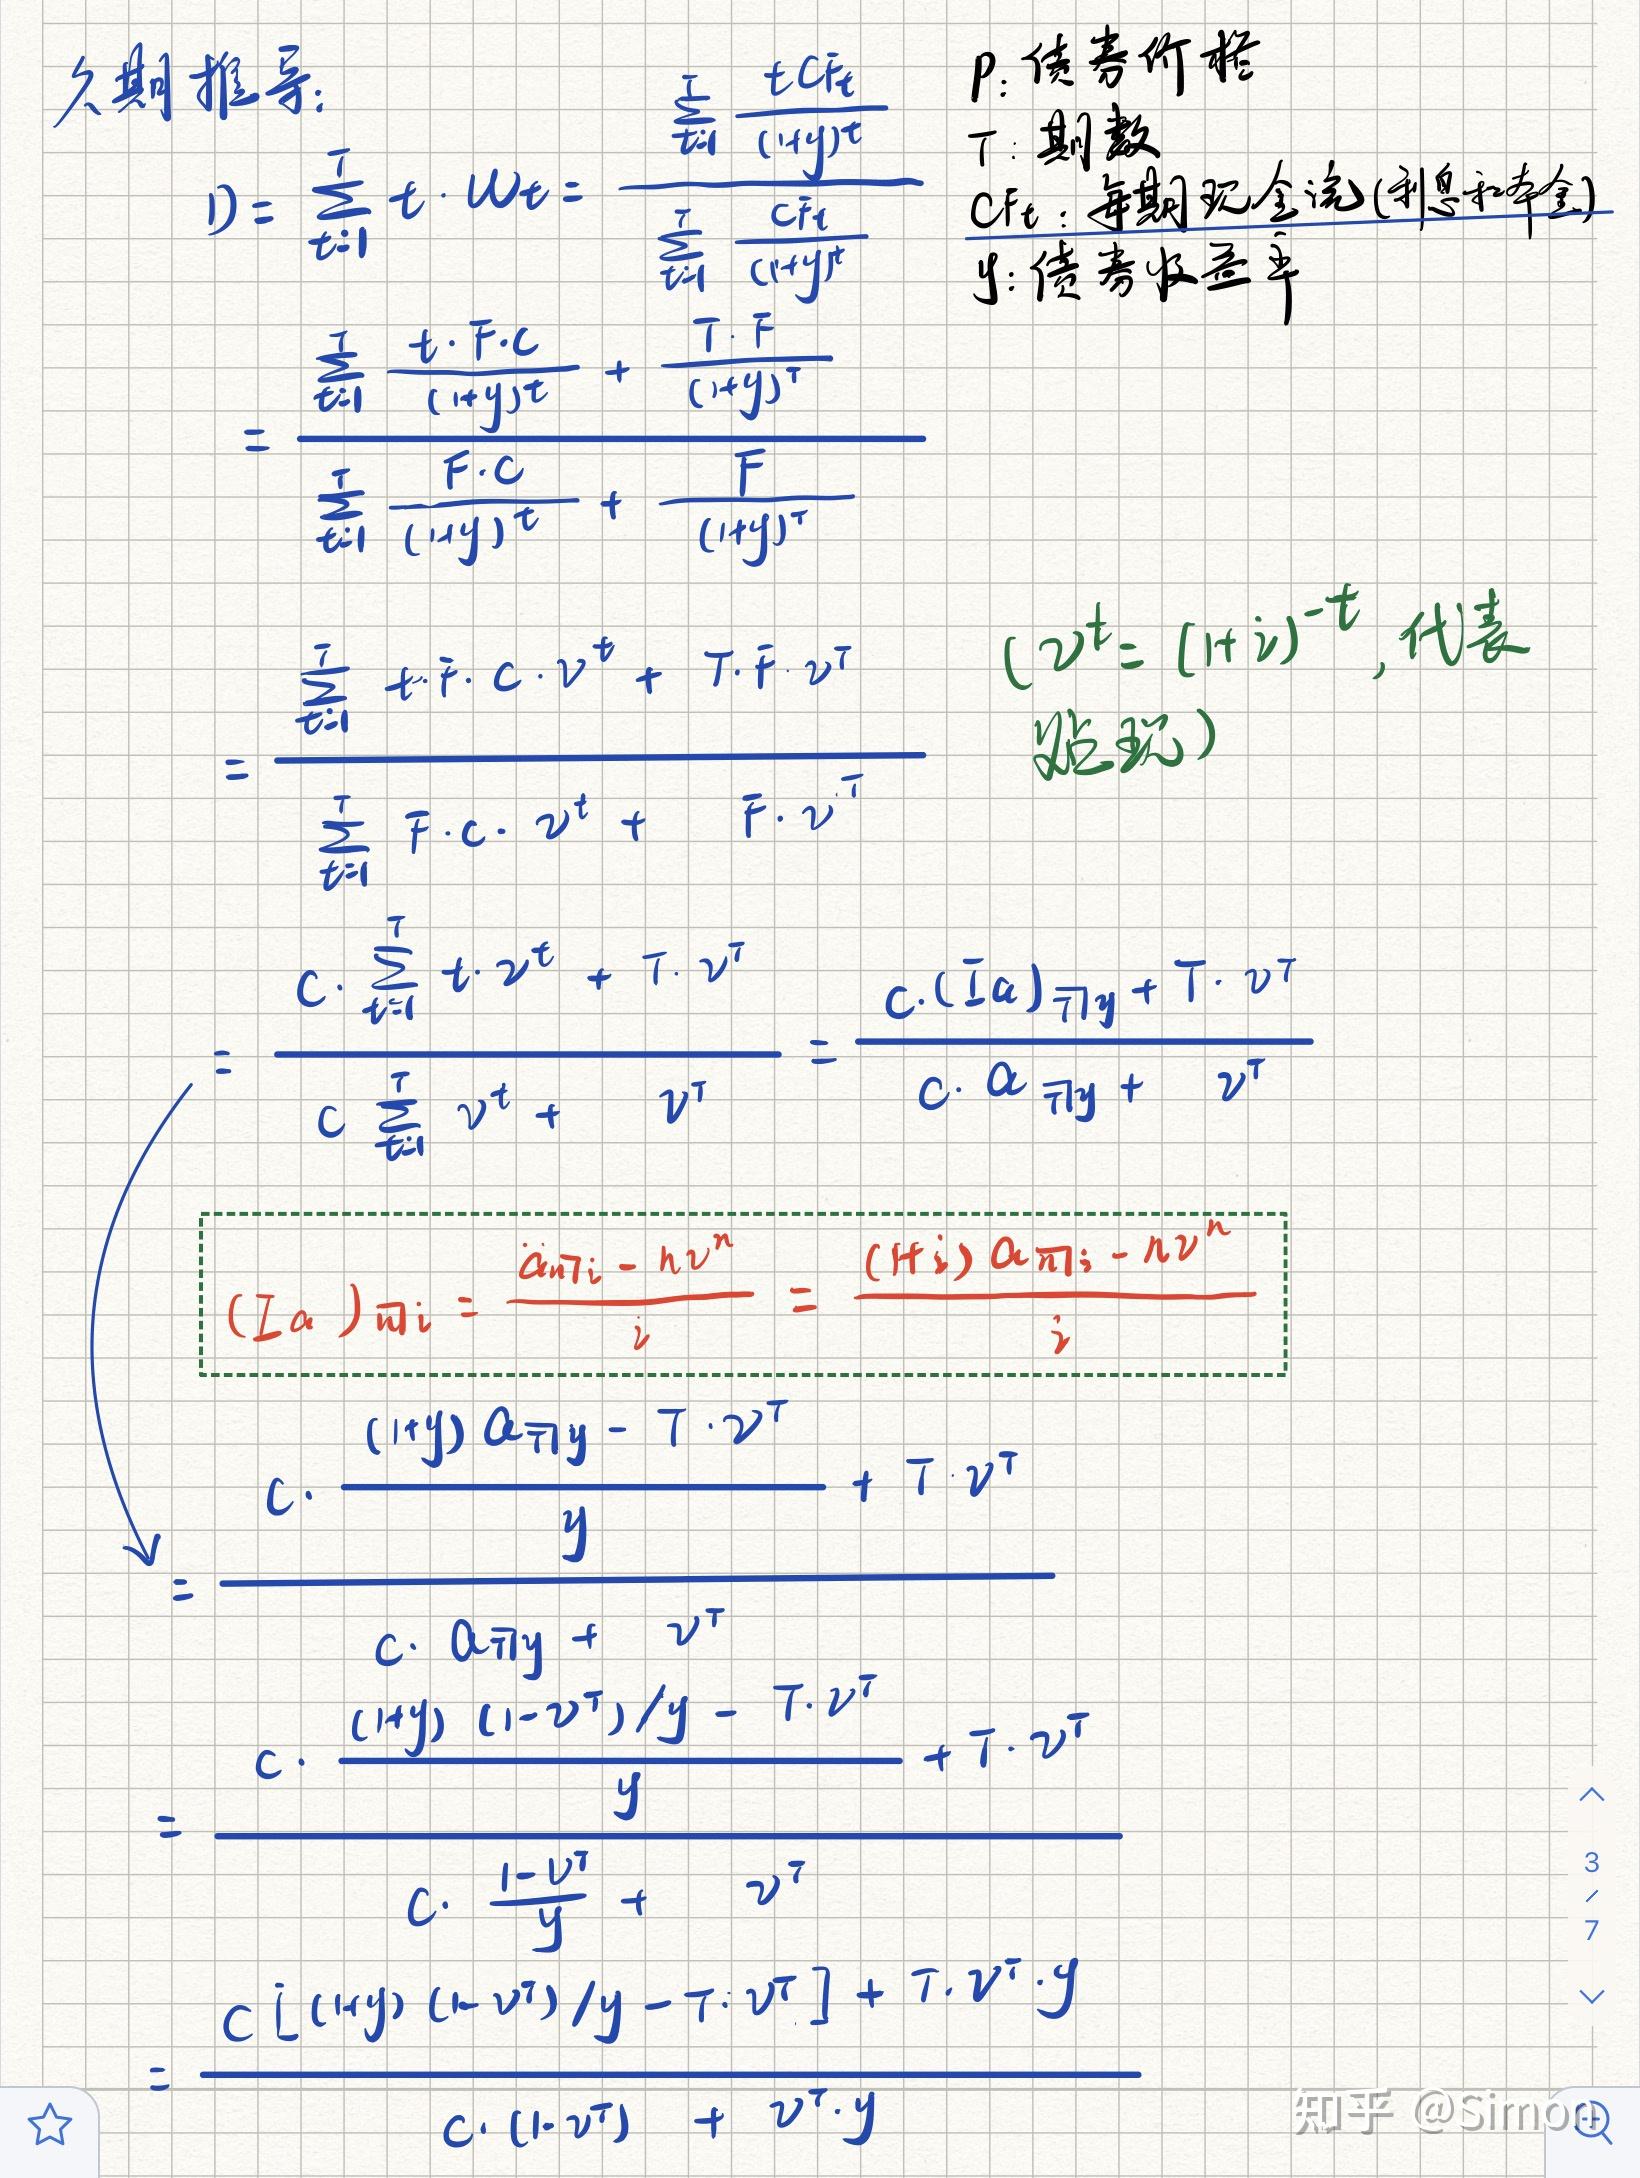 久期推导:
P: 债券价格
T: 期数
CFt: 每期现金流(利息和本金)
y: 债券收益率
D = \sum_{t=1}^{T} t·Wt = \frac{\sum_{t=1}^{T} \frac{tCFt}{(1+y)^t}}{\sum_{t=1}^{T} \frac{CFt}{(1+y)^t}}
= \frac{\sum_{t=1}^{T} \frac{t·F·C}{(1+y)^t} + \frac{T·F}{(1+y)^T}}{\sum_{t=1}^{T} \frac{F·C}{(1+y)^t} + \frac{F}{(1+y)^T}}
(v^t = (1+i)^{-t}, 代表
贴现)
= \frac{\sum_{t=1}^{T} t·F·C·v^t + T·F·v^T}{\sum_{t=1}^{T} F·C·v^t + F·v^T}
= \frac{C·\sum_{t=1}^{T} t·v^t + T·v^T}{C \sum_{t=1}^{T} v^t + v^T} = \frac{C·(Ia)_{T¬y} + T·v^T}{C·a_{T¬y} + v^T}
(Ia)_{n¬i} = \frac{ä_{n¬i} - nv^n}{i} = \frac{(1+i) a_{n¬i} - nv^n}{i}
= \frac{C·\frac{(1+y) a_{T¬y} - T·v^T}{y} + T·v^T}{C·a_{T¬y} + v^T}
= \frac{C·\frac{(1+y)(1-v^T)/y - T·v^T}{y} + T·v^T}{C·\frac{1-v^T}{y} + v^T}
= \frac{C[(1+y)(1-v^T)/y - T·v^T] + T·v^T·y}{C·(1-v^T) + v^T·y}
3
/
7
知乎 @Simon